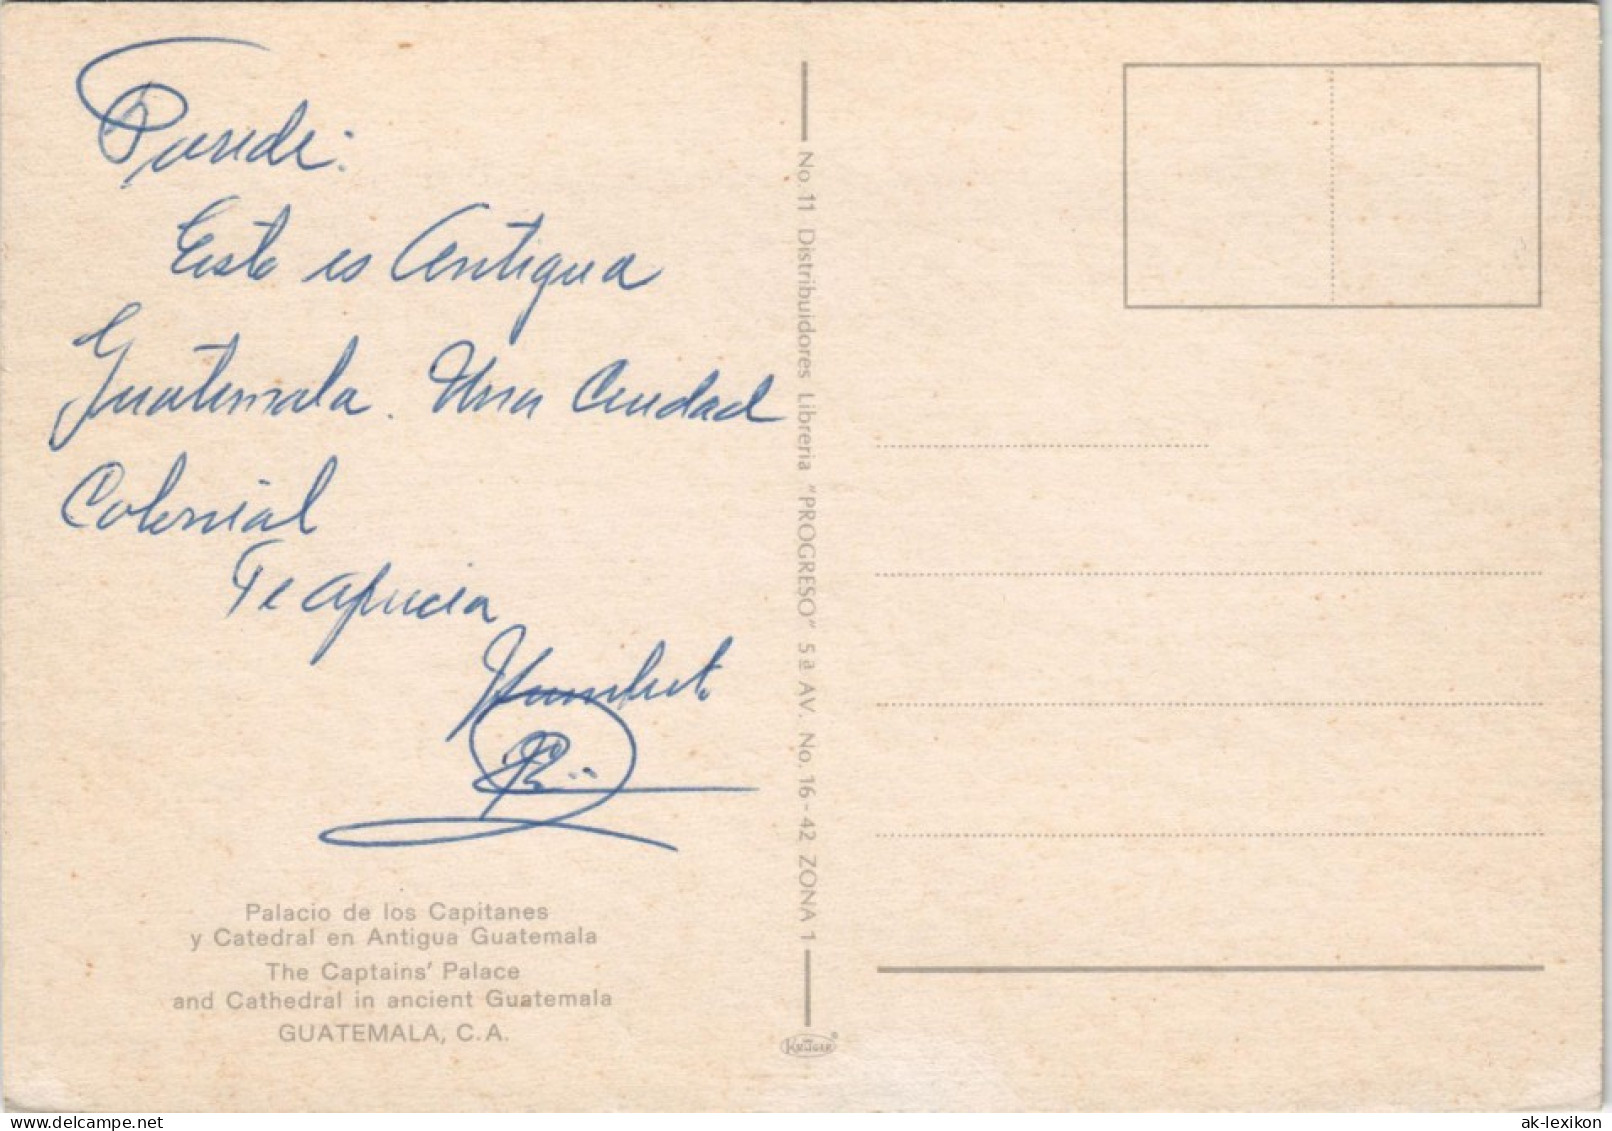 Esto es Antigua
Guatemala. Una Ciudad
Colonial
Te aprecia
Humberto
Palacio de los Capitanes
y Catedral en Antigua Guatemala
The Captains' Palace
and Cathedral in ancient Guatemala
GUATEMALA, C.A.
No. 11 Distribuidores Libreria "PROGRESO" 5ª AV. No. 16-42 ZONA 1
KRÜGER
delcampe.net
ak-lexikon